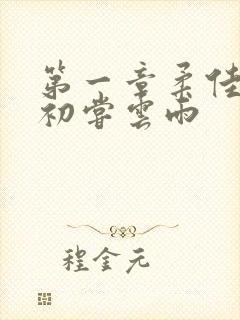 第一章柔佳
初尝雲雨
程金元